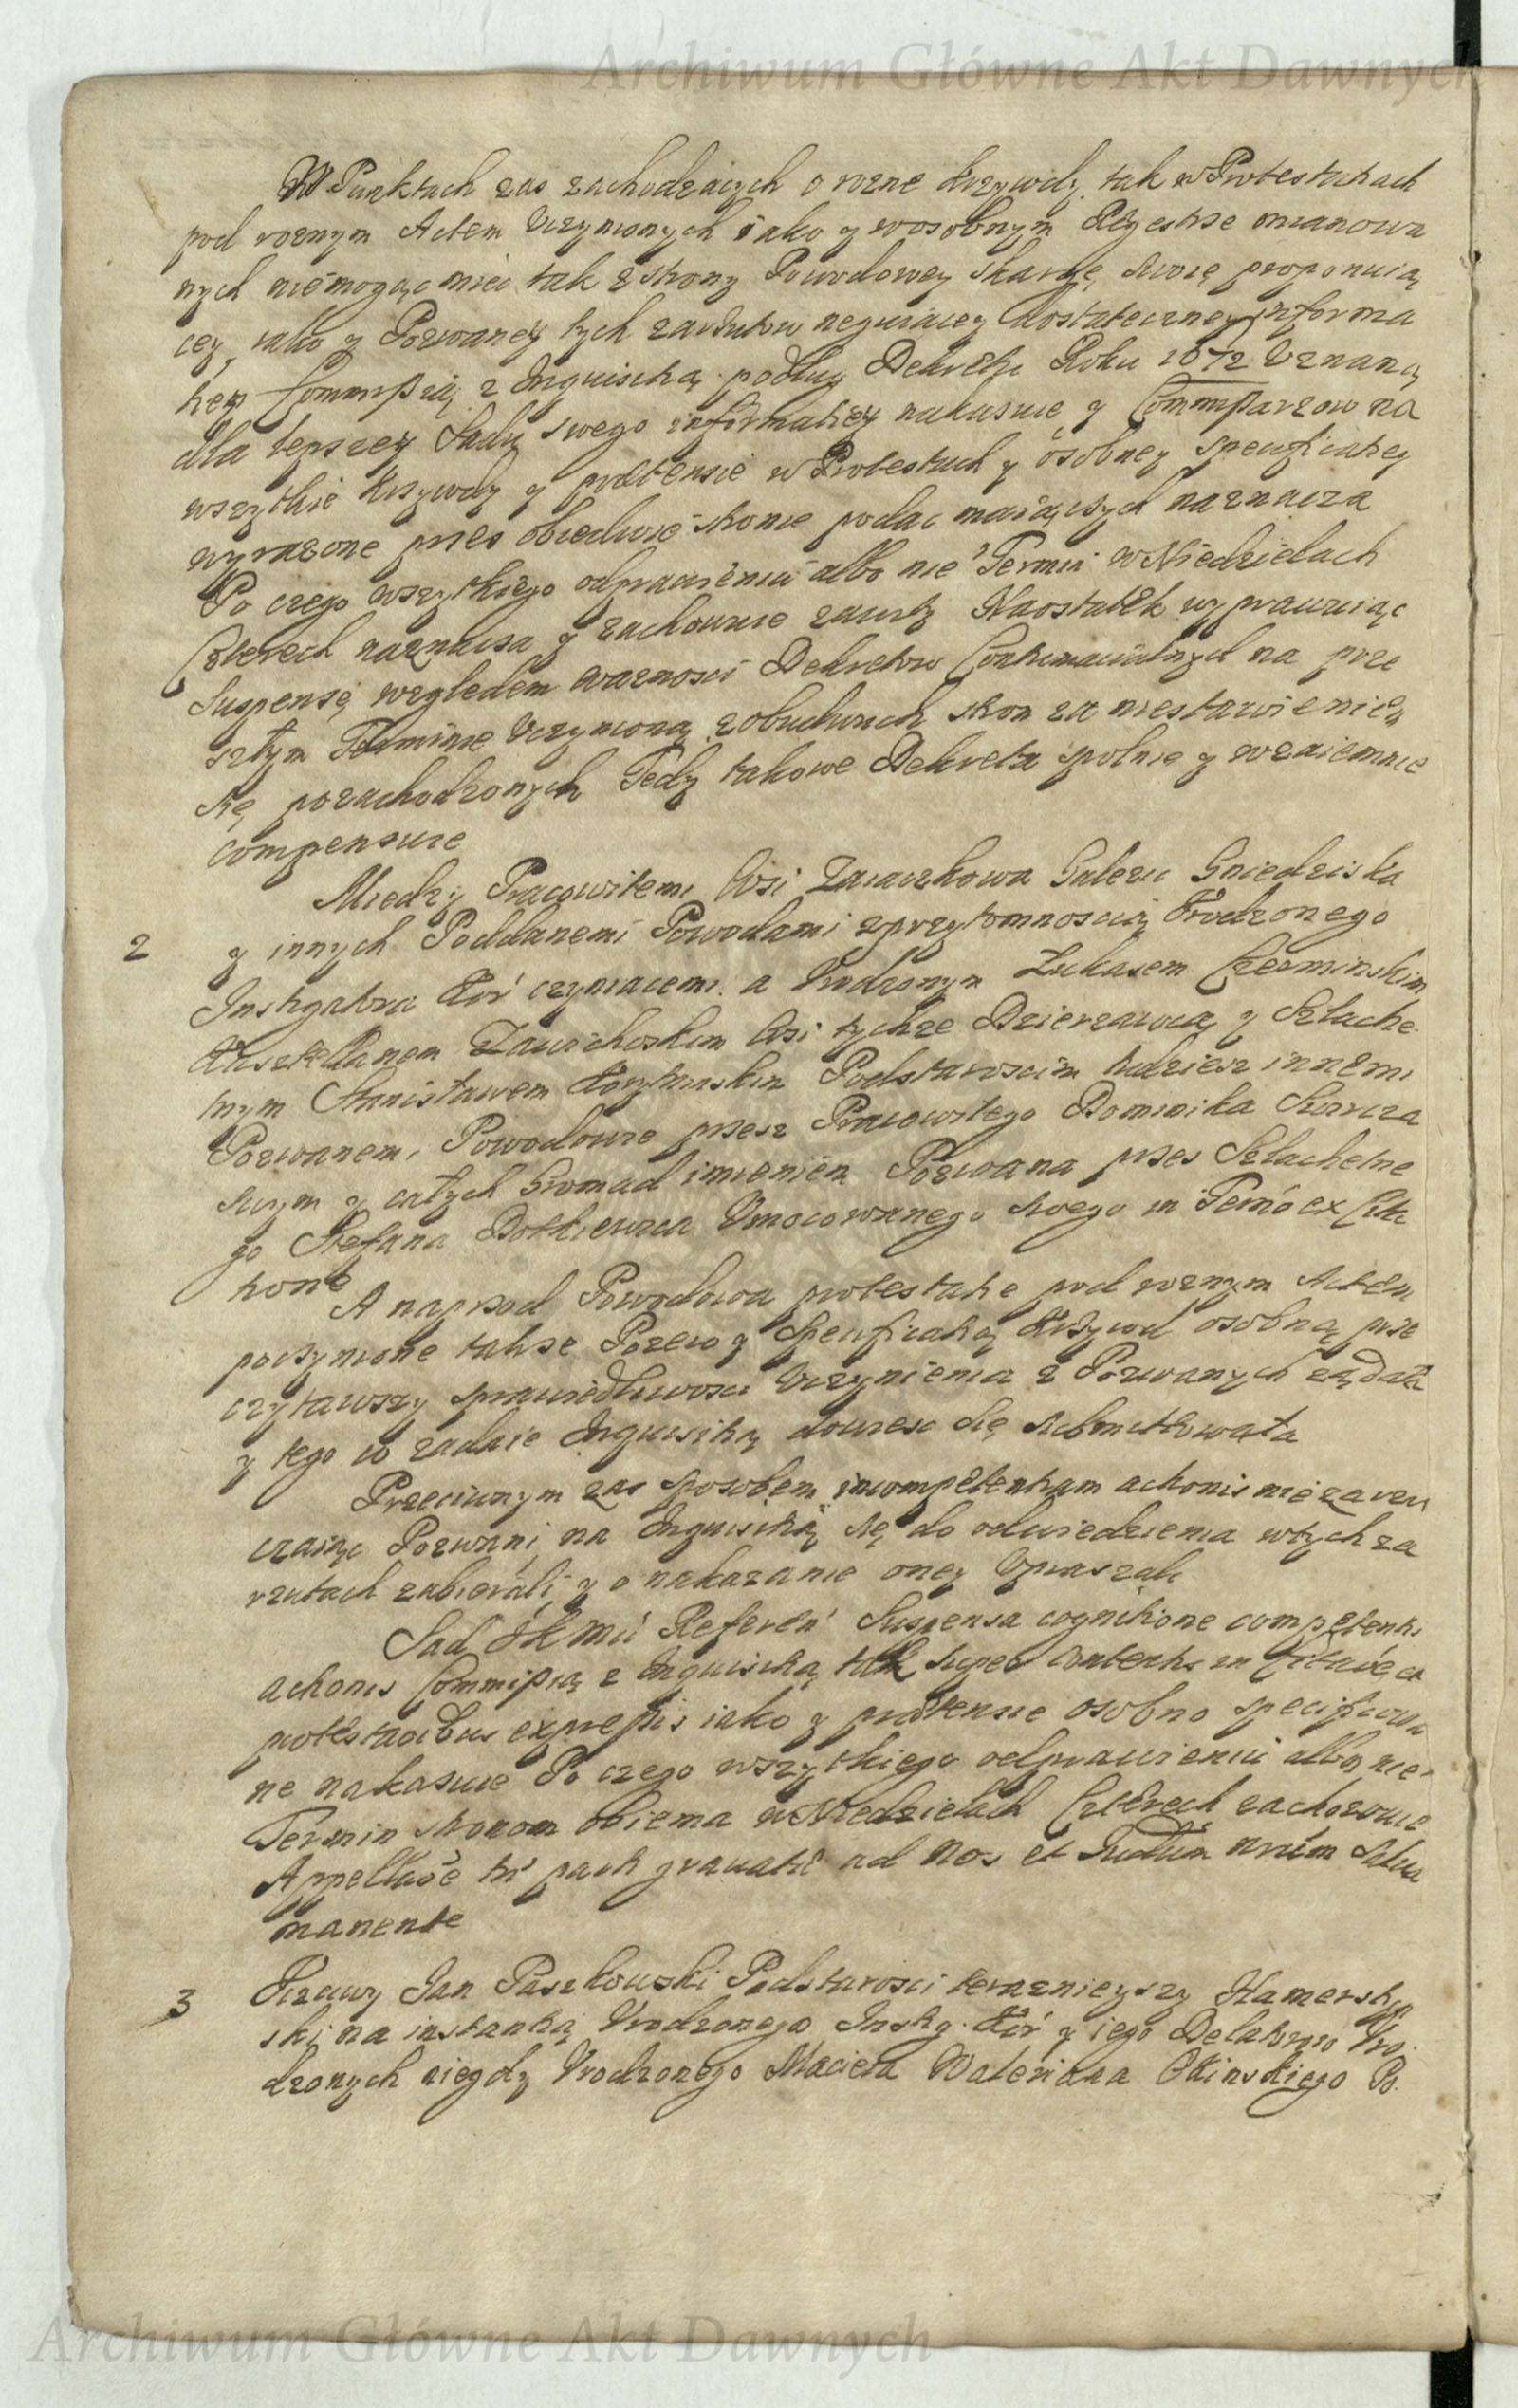 Archiwum Główne Akt Dawnych
W Punktach zas zachodzących o rozne krzywdy, tak w Protestatiach
pod roznym Actem Uczynionych iako y w osobnym Regestrze mianowa
nych niemogąc miec tak z strony Powodowey skargę swoię proponuią
cey, iako y Pozwaney tych zarzutow neguiącey dostateczney informa
tiey Commissią z Inquisitią podług Dekretu Roku 1672 Uznaną
dla lepszey Sądu swego informatiey nakazuie y Commissarzow na
wszytkie krzywdy y praetensie w Protestach y osobney specificatiey
wyrazone przes obiedwie stronie podac maiących naznacza
Po czego wszytkiego odprawieniu albo nie Termin w Niedzielach
Czterech naznacza y zachowuie zawity Naostatek wyprawuiąc
Suspensę względem waznosci Dekretow Contumacialnych na prze
szłym Terminie Uczynioną z obudwuch stron za niestawienie
się pozachodzonych Tedy takowe Dekreta spolnie y wzaiemnie
compensuie
2
Miedzy Pracowitemi Wsi Zaiączkowa Gniedziska
y innych Poddanemi Powodami z przytomnoscią Urodzonego
Instygatora Kor czyniącemi a Urodzonym Łukaszem Czerminskim
Kasztellanem Zawichoskim Wsi tychze Dzierzawcą y Szlache
tnym Stanisławem Podstaroscim tudziesz innemi
Pozwanemi, Powodowie przesz Pracowitego Dominika
swym y całych Gromad imieniem Pozwana przes Szlachetne
go Stefana Umocowanego swego in Termo ex Cita
tione
A naprzod Powodowa protestatie pod roznym Actem
poczynione takze Pozew y Specificatią Krzywd osobną prze
czytawszy sprawiedliwosci Uczynienia z Pozwanych ządała
y tego co zadaie Inquisitią dowiesc się submittowała
Przeciwnym zas sposobem incompetentiam actionis niezarzu
czaiąc Pozwani na Inquisitią się do odwiedzenia w tych za
rzutach zabierali, y o nakazanie oney Upraszali
Sąd Referen Suspensa cognitione competenti
actionis Commissią z Inquisitią tak super contentis in Citaoe et
protestaoibus expressis iako y praetensie osobno specificowa
ne nakazuie Po czego wszytkiego odprawieniu albo nie
Termin stronom obiema w Niedzielach Czterech zachowuie
Appellaoe tn parti gravatae ad Nos et Iudicium nrum salva
manente
3
Jan Paszkowski Podstarosci teraznieyszy Hamersty
ski na instantią Urodzonego Instig. Kor y iego Delatorow Uro
dzonych niegdy Urodzonego Macieia Waleriana Po.
Archiwum Główne Akt Dawnych